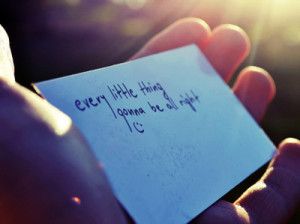 every little thing
gonna be all right
:)